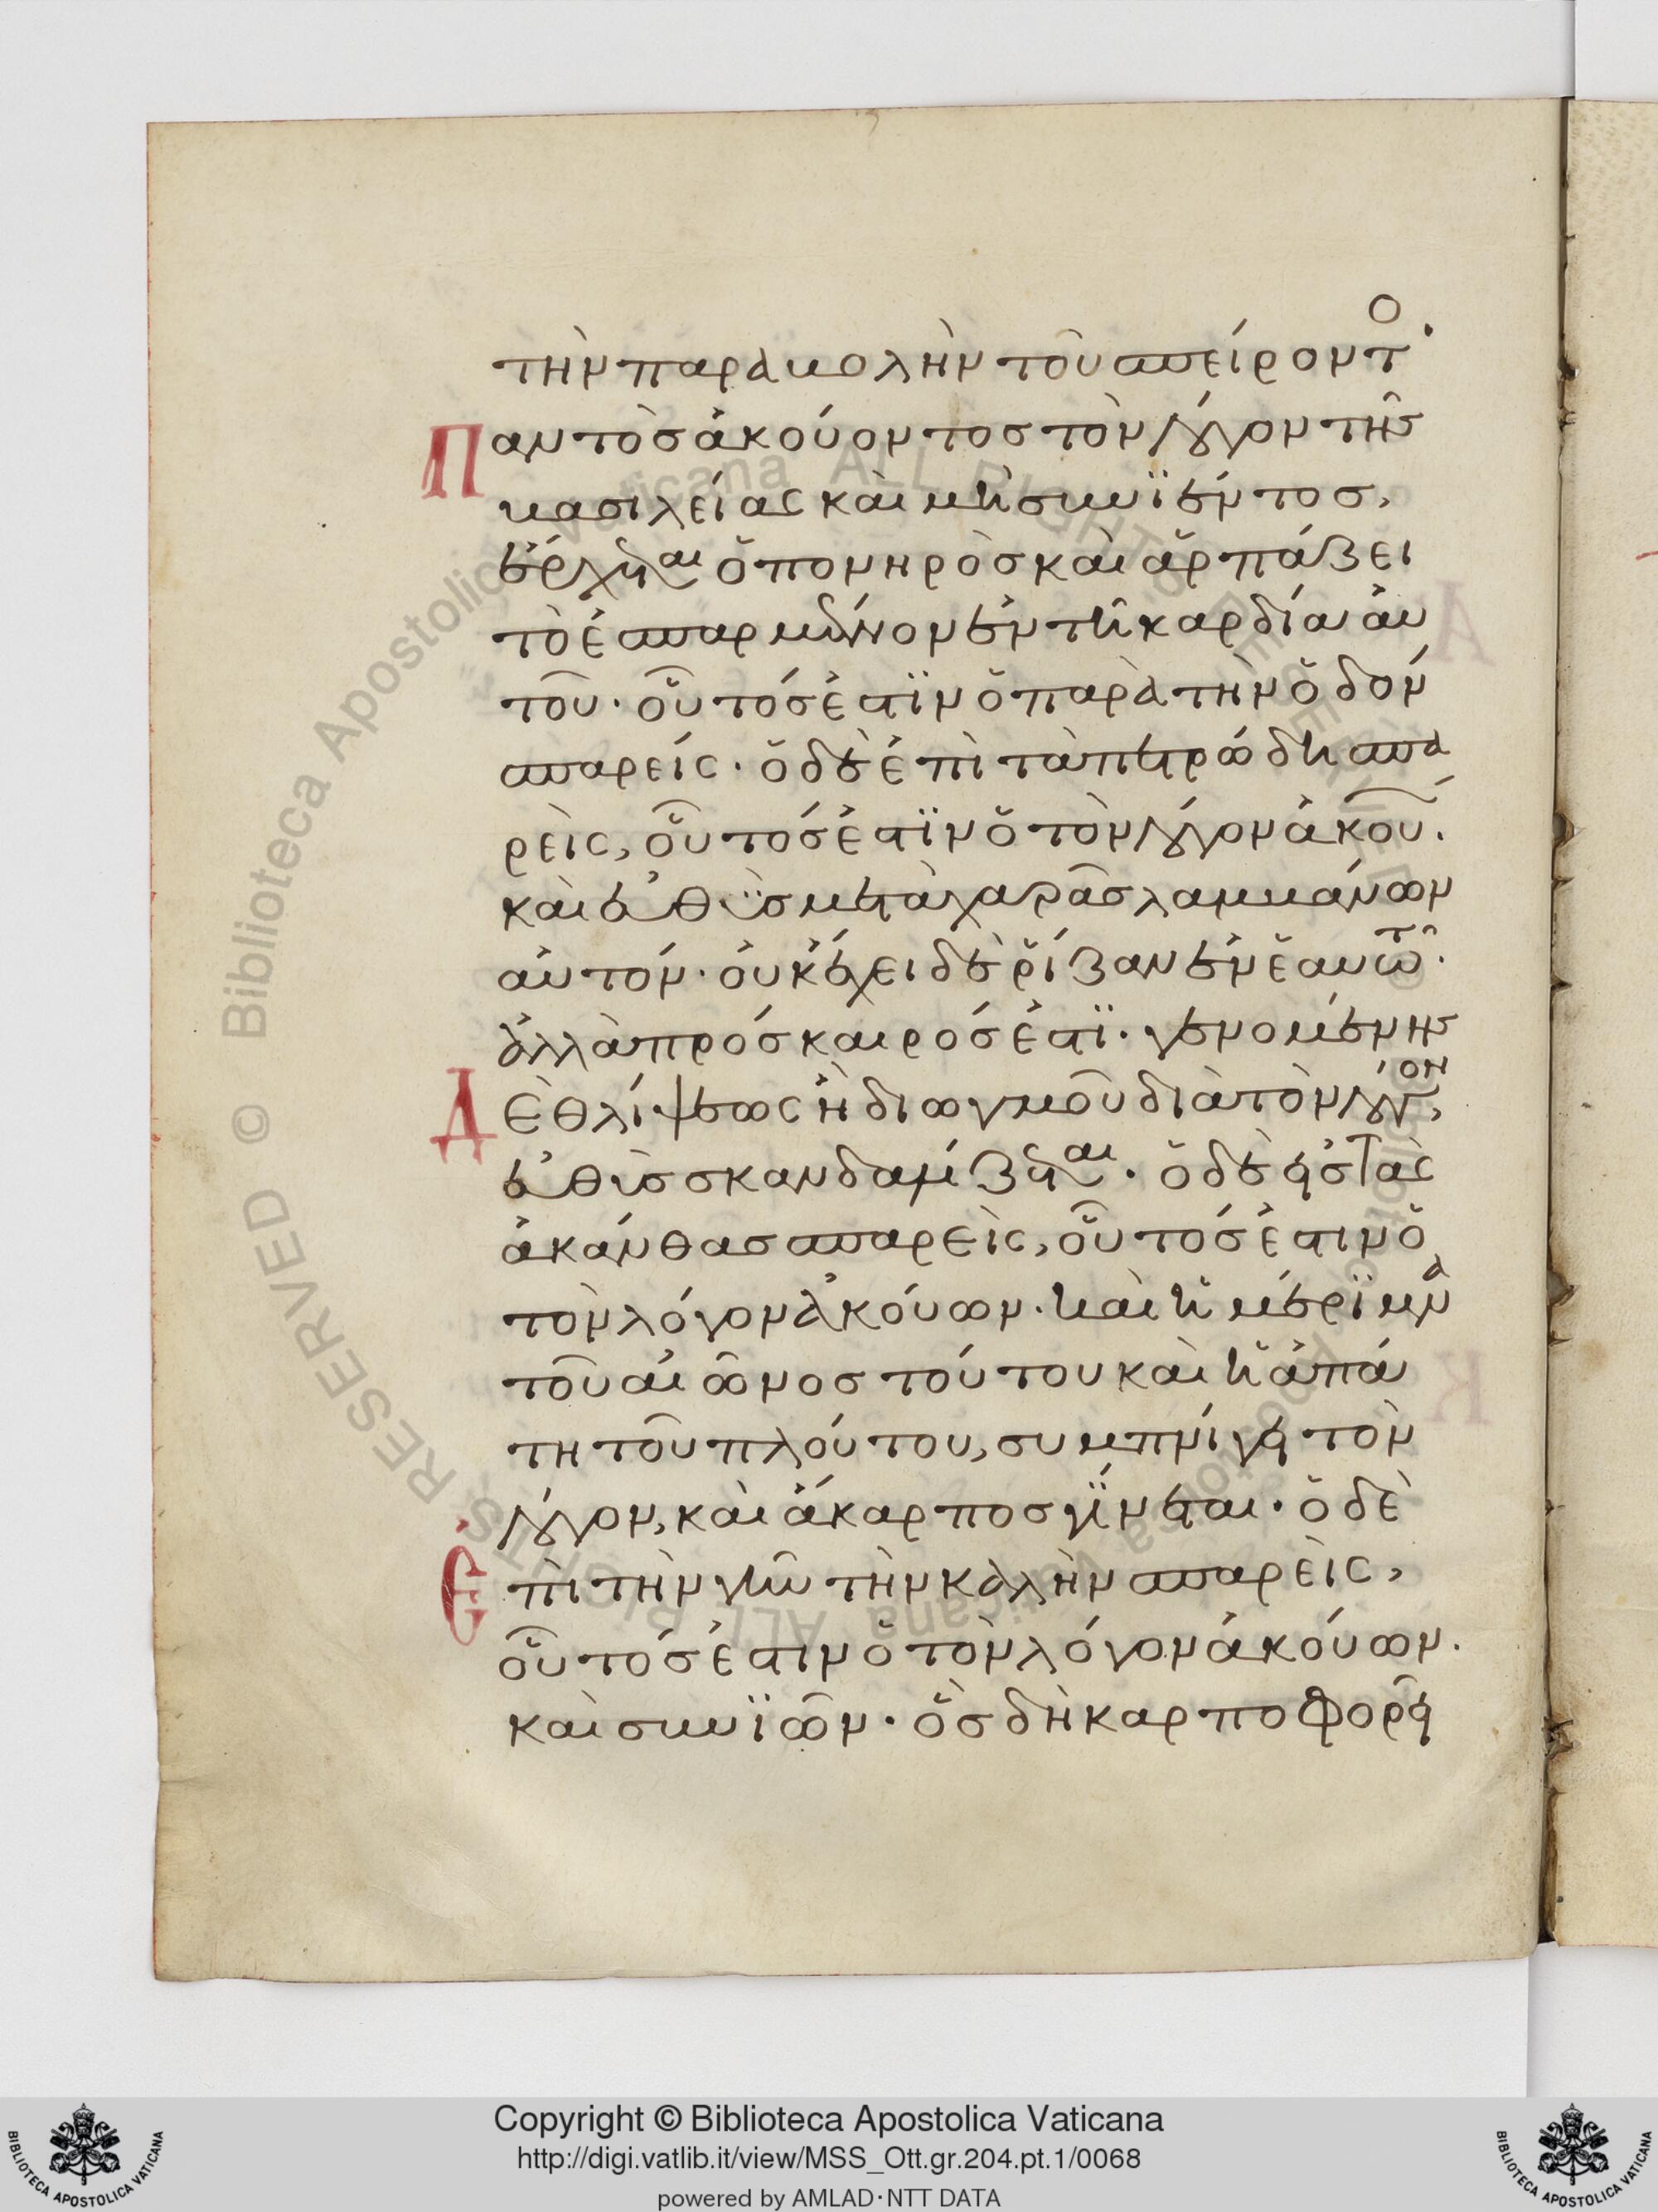 τὴν παραβολὴν τοῦ σπείροντο.
Παντὸς ἀκούοντος τὸν λόγον τῆς
βασιλείας καὶ μὴ συνϊέντος,
ἔρχεται ὁ πονηρὸς καὶ ἁρπάζει
τὸ ἐσπαρμένον ἐν τῆ καρδία αὐ
τοῦ· οὗτός ἐστϊν ὁ παρὰ τὴν ὁδὸν
σπαρείς· ὁ δὲ ἐπὶ τὰ πετρώδη σπα
ρεὶς, οὗτός ἐστϊν ὁ τὸν λόγον ἀκού.
καὶ εὐθϋς μετὰ χαρᾶς λαμβάνων
αὐτόν· οὐκ ἔχει δὲ ῥίζαν ἐν ἑαυτῶ·
ἀλλὰ πρόσκαιρός ἐστϊ· γενομένης
Δὲ θλίψεως ἢ διωγμοῦ διὰ τὸν λόγον,
εὐθὺς σκανδαλίζεται· ὁ δὲ εἰς τὰς
ἀκάνθας σπαρεὶς, οὗτός ἐστιν ὁ
τὸν λόγον ἀκούων· καὶ ἡ μέρϊμνα
τοῦ αἰῶνος τούτου καὶ ἡ ἀπά
τη τοῦ πλούτου, συμπνίγει τὸν
λόγον, καὶ ἄκαρπος γΐνεται· ὁ δὲ
Ἐπὶ τὴν γῆν τὴν καλὴν σπαρεὶς,
οὗτός ἐστιν ὁ τὸν λόγον ἀκούων.
καὶ συνϊῶν· ὃς δὴ καρποφορεῖ
Copyright © Biblioteca Apostolica Vaticana
http://digi.vatlib.it/view/MSS_Ott.gr.204.pt.1/0068
powered by AMLAD·NTT DATA